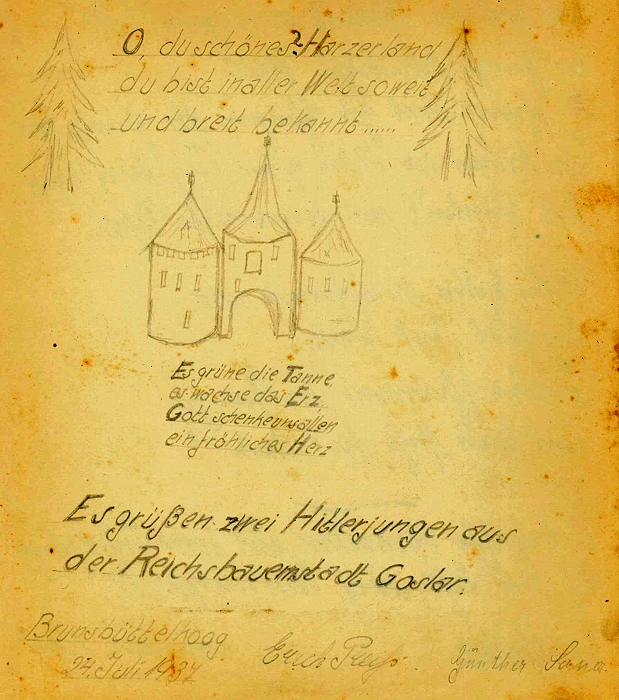 O, du schönes Harzerland
du bist in aller Welt soweit
und breit bekannt......
Es grüne die Tanne,
es wachse das Erz,
Gott schenke uns allen
ein fröhliches Herz
Es grüßen zwei Hitlerjungen aus
der Reichsbauernstadt Goslar.
Brunsbüttelkoog
24. Juli 1937
Erich
Günther